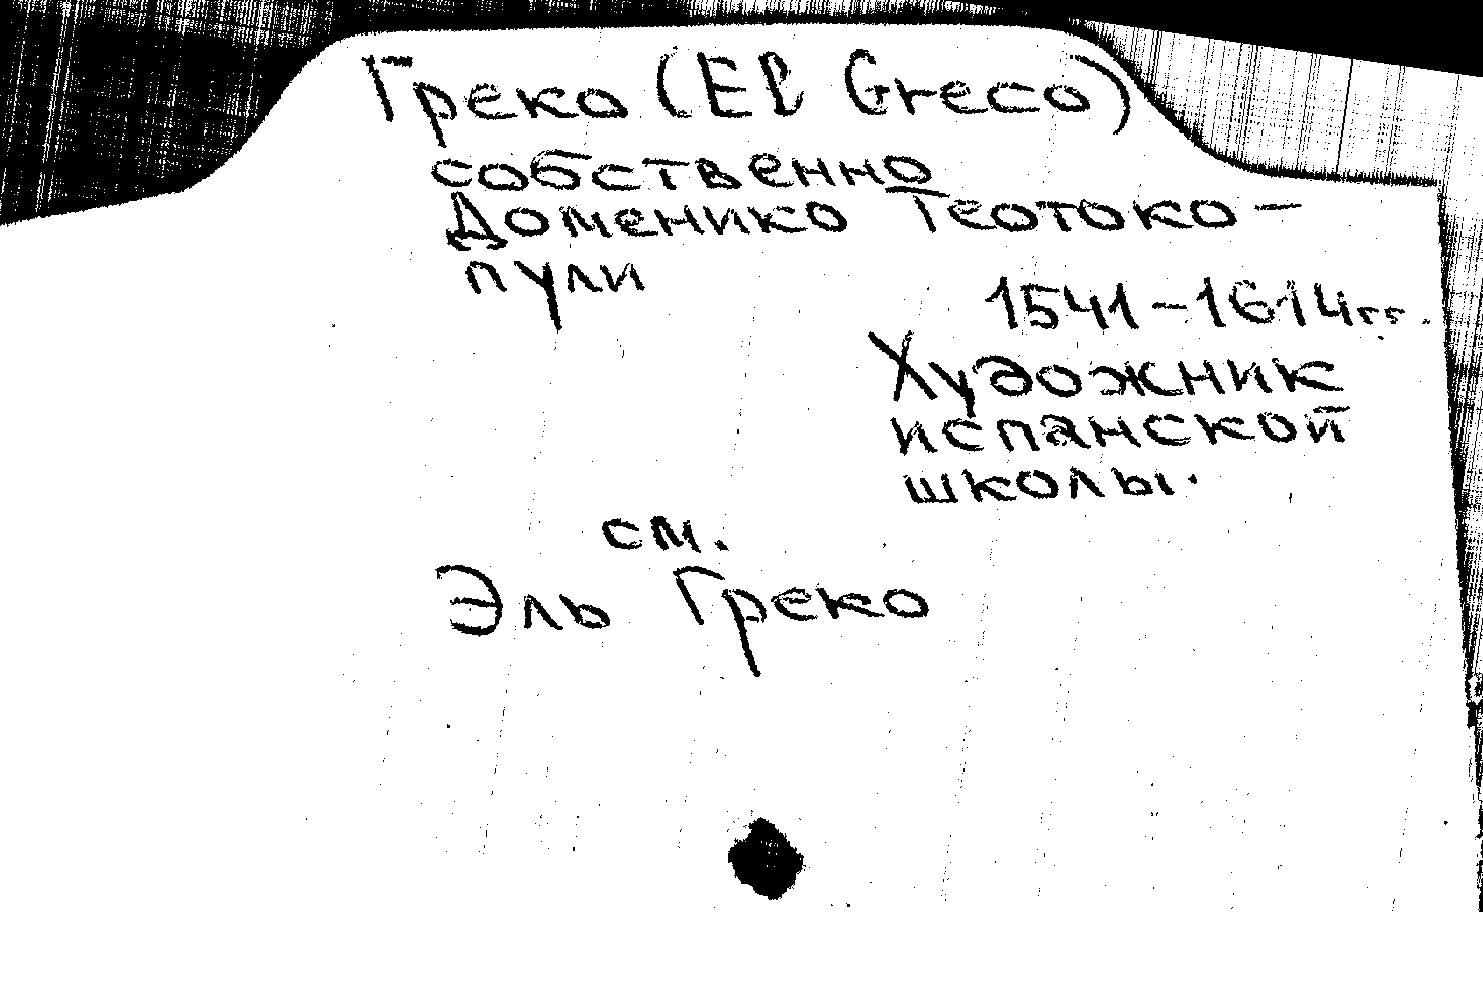 Греко (El Greco)
собственно
Доменико Теотоко-
пули
1541-1614гг.
Художник
испанской
школы.
см.
Эль Греко